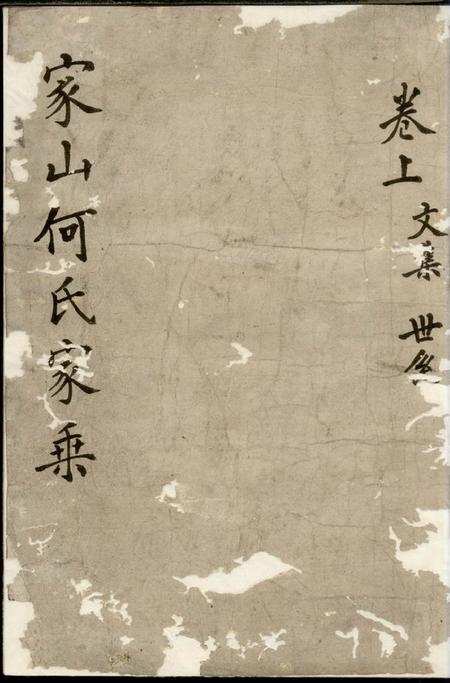 卷上
文集 世系
家山何氏家乗